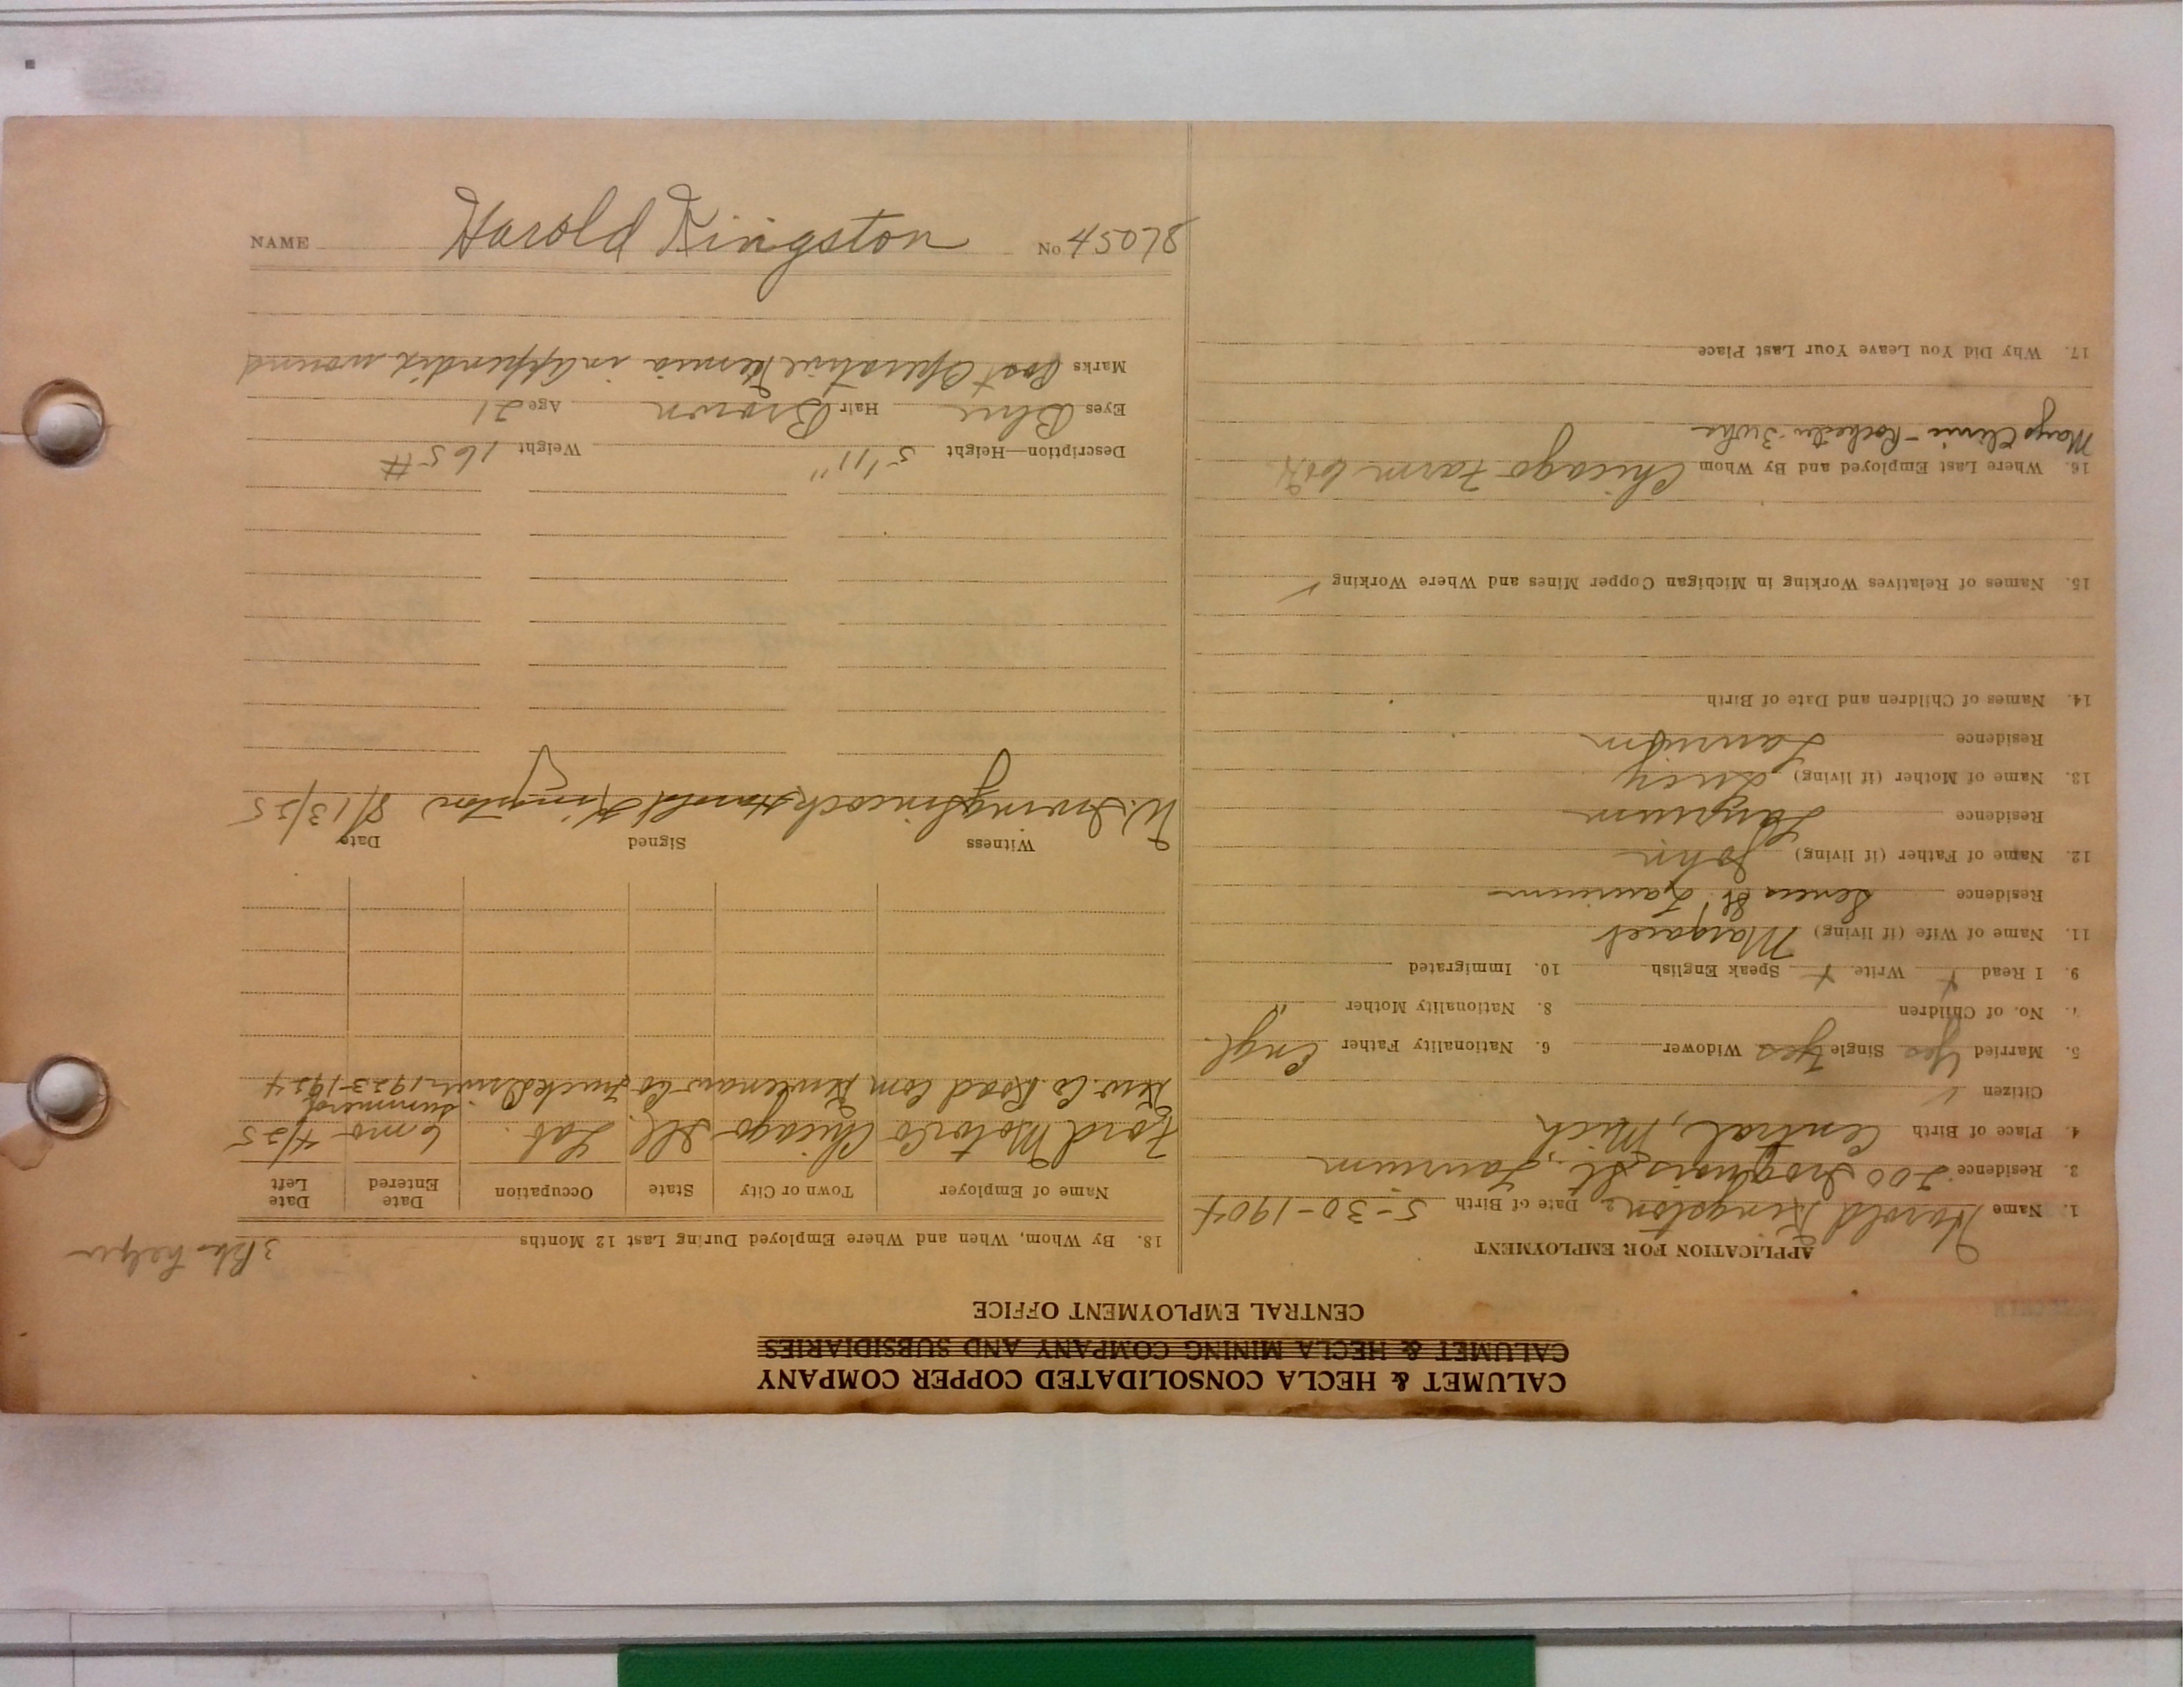 CALUMET & HECLA CONSOLIDATED COPPER COMPANY
CALUMET & HECLA MINING COMPANY AND SUBSIDIARIES
CENTRAL EMPLOYMENT OFFICE
APPLICATION FOR EMPLOYMENT
1. Name Harold Kingston Date of Birth 5-30-1904
3. Residence 200 Iroquois St., Laurium
4. Place of Birth Central, Mich
Citizen ✓
5. Married Yes Single Yes Widower 6. Nationality Father Engl.
7. No. of Children 8. Nationality Mother "
9. I Read + Write + Speak English 10. Immigrated
11. Name of Wife (if living) Margaret
Residence Seneca St. Laurium
12. Name of Father (if living) John
Residence Laurium
13. Name of Mother (if living) Lucy
Residence Laurium
14. Names of Children and Date of Birth
15. Names of Relatives Working in Michigan Copper Mines and Where Working ✓
16. Where Last Employed and By Whom Chicago Farm
Mayo Clinic - Rochester
17. Why Did You Leave Your Last Place
3 helper
18. By Whom, When and Where Employed During Last 12 Months
Name of Employer Town or City State Occupation Date Entered Date Left
Ford Motor Co Chicago Ill. Lab. 6 mo 4/25
Kew. Co. Road Com Keweenaw Co Truck driver summer of 1923-1924
Witness Signed Date
W. Irving Harold Kingston 8/13/25
Description—Height 5'11" Weight 165#
Eyes Blue Hair Brown Age 21
Marks Post Operative Hernia in appendix wound
NAME Harold Kingston No. 45078